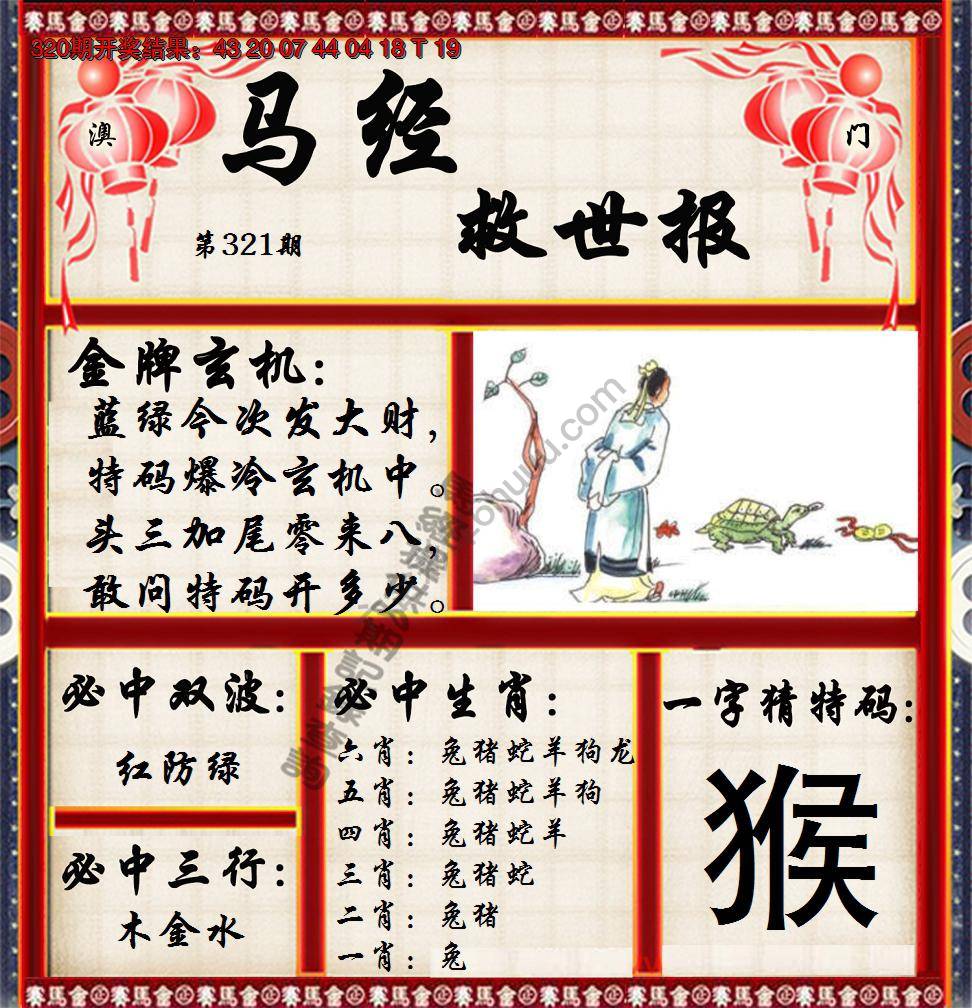 320期开奖结果：43 20 07 44 04 18 T 19
澳
门
马经
救世报
第321期
金牌玄机：
蓝绿今次发大财，
特码爆冷玄机中。
头三加尾零来八，
敢问特码开多少。
必中双波：
红防绿
必中三行：
木金水
必中生肖：
六肖：兔猪蛇羊狗龙
五肖：兔猪蛇羊狗
四肖：兔猪蛇羊
三肖：兔猪蛇
二肖：兔猪
一肖：兔
一字猜特码：
猴